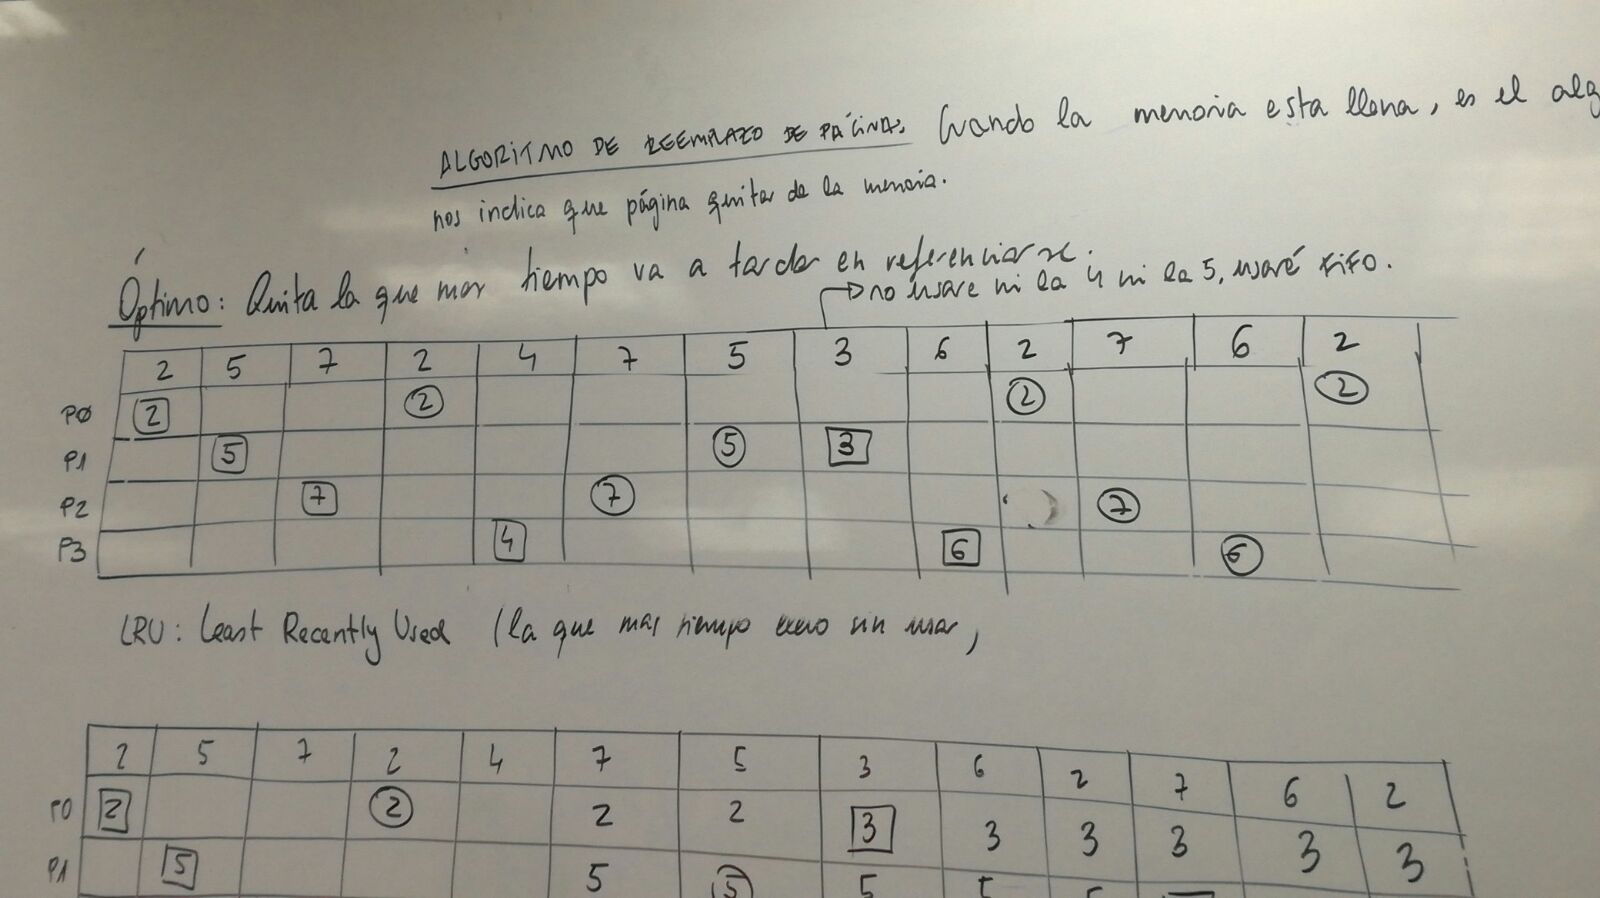 ALGORITMO DE REEMPLAZO DE PÁGINAS. Cuando la memoria esta llena, es el alg
nos indica que página quitar de la memoria.
Óptimo: Quita la que más tiempo va a tardar en referenciarse.
no usare ni la 4 ni la 5, usaré FIFO.
2 5 7 2 4 7 5 3 6 2 7 6 2
P0 2 2 2 2
P1 5 5 3
P2 7 7 7
P3 4 6 6
LRU: Least Recently Used (la que mas tiempo sin usar,
2 5 7 2 4 7 5 3 6 2 7 6 2
P0 2 2 2 2 3 3 3 3 3 3
P1 5 5 5 5